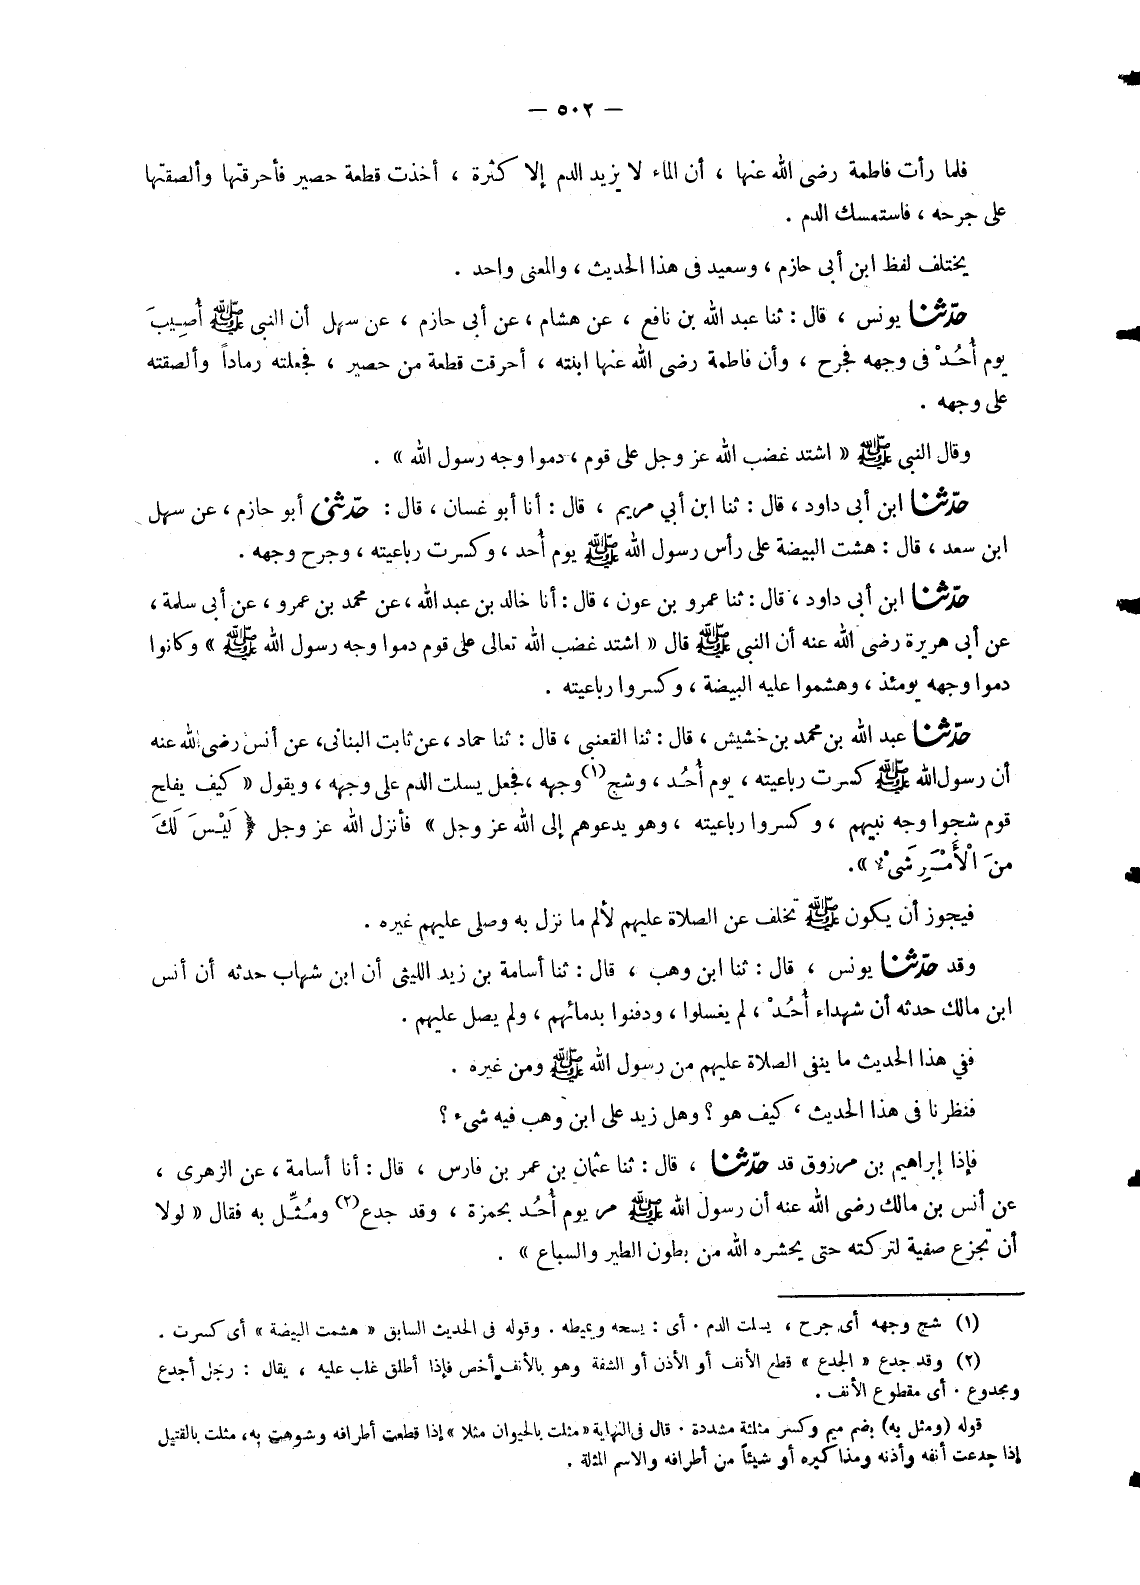 — ٥٠٢ —
فلما رأت فاطمة رضى الله عنها ، أن الماء لا يزيد الدم إلا كثرة ، أخذت قطعة حصير فأحرقتها وألصقتها
على جرحه ، فاستمسك الدم .
يختلف لفظ ابن أبى حازم ، وسعيد فى هذا الحديث ، والمعنى واحد .
حدّثنا يونس ، قال : ثنا عبد الله بن نافع ، عن هشام ، عن أبى حازم ، عن سهل أن النبى ﷺ أُصِيبَ
يوم أُحُدْ فى وجهه فجرح ، وأن فاطمة رضى الله عنها ابنته ، أحرقت قطعة من حصير ، فجعلته رماداً وألصقته
على وجهه .
وقال النبى ﷺ « اشتد غضب الله عز وجل على قوم ، دموا وجه رسول الله » .
حدّثنا ابن أبى داود ، قال : ثنا ابن أبي مريم ، قال : أنا أبو غسان ، قال : حدّثنى أبو حازم ، عن سهل
ابن سعد ، قال : هشت البيضة على رأس رسول الله ﷺ يوم أُحد ، وكسرت رباعيته ، وجرح وجهه .
حدّثنا ابن أبى داود ، قال : ثنا عمرو بن عون ، قال : أنا خالد بن عبد الله ، عن محمد بن عمرو ، عن أبى سلمة ،
عن أبى هريرة رضى الله عنه أن النبى ﷺ قال « اشتد غضب الله تعالى على قوم دموا وجه رسول الله ﷺ » وكانوا
دموا وجهه يومئذ ، وهشموا عليه البيضة ، وكسروا رباعيته .
حدّثنا عبد الله بن محمد بن خشيش ، قال : ثنا القعنبى ، قال : ثنا حماد ، عن ثابت البنانى، عن أنس رضى الله عنه
أن رسول الله ﷺ كسرت رباعيته ، يوم أُحُد ، وشج(١) وجهه ، فجعل يسلت الدم على وجهه ، ويقول « كيف يفلح
قوم شجوا وجه نبيهم ، وكسروا رباعيته ، وهو يدعوهم إلى الله عز وجل » فأنزل الله عز وجل ﴿ لَيْسَ لَكَ
مِنَ الْأَمْرِ شَىْءٌ ».
فيجوز أن يكون ﷺ تخلف عن الصلاة عليهم لألم ما نزل به وصلى عليهم غيره .
وقد حدّثنا يونس ، قال : ثنا ابن وهب ، قال : ثنا أسامة بن زيد الليثى أن ابن شهاب حدثه أن أنس
ابن مالك حدثه أن شهداء أُحُدْ ، لم يغسلوا ، ودفنوا بدمائهم ، ولم يصل عليهم .
ففي هذا الحديث ما ينفى الصلاة عليهم من رسول الله ﷺ ومن غيره .
فنظرنا فى هذا الحديث ، كيف هو ؟ وهل زيد على ابن وهب فيه شىء ؟
فإذا إبراهيم بن مرزوق قد حدّثنا ، قال : ثنا عثمان بن عمر بن فارس ، قال : أنا أسامة ، عن الزهرى ،
عن أنس بن مالك رضى الله عنه أن رسول الله ﷺ مر يوم أُحُد بحمزة ، وقد جدع(٢) ومُثِّل به فقال « لولا
أن تجزع صفية لتركته حتى يحشره الله من بطون الطير والسباع » .
(١) شج وجهه أى جرح ، يسلت الدم . أى : يسحه ويميطه . وقوله فى الحديث السابق « هشمت البيضة » أى كسرت .
(٢) وقد جدع « الجدع » قطع الأنف أو الأذن أو الشفة وهو بالأنف أخص فإذا أطلق غلب عليه ، يقال : رجل أجدع
ومجدوع . أى مقطوع الأنف .
قوله (ومثل به) بضم ميم وكسر مثلثة مشددة . قال فى النهاية « مثلت بالحيوان مثلا » إذا قطعت أطرافه وشوهت به، مثلت بالقتيل
إذا جدعت أنفه وأذنه ومذاكيره أو شيئاً من أطرافه والاسم المثلة .